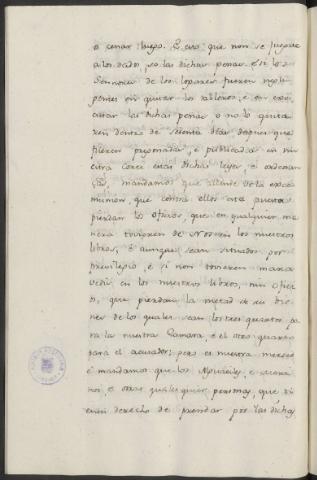 o cenar luego. E otro que non se juegue
a los dados, so las dichas penas. E si los
Sennores de los logares fueren negli-
gentes en quitar los tableros, e en exe-
cutar las dichas penas, o no lo quita-
ren dentro de treinta dias, despues que
fueren pregonadas, e publicadas en nu-
estra Corte estas dichas leyes, e ordenan-
ças, mandamos que allende de la exco-
munion, que contra ellos esta puesta
pierdan los oficios, que en qualquier ma-
nera tovieren de Nos en los nuestros
libros, e aunque sean situados por
previlegio, e si non tovieren marave-
vedis en los nuestros libros, nin ofici-
o, que pierdan la metad de su bie-
nes de los quales sean los tres quartos pa-
ra la nuestra Camara, e el otro quarto
para el acusador, pero es nuestra merced
e mandamos que los Alguaciles, e Merinos
nos, e otras qualesquier personas, que ti-
enen derecho de prendar por las dichas